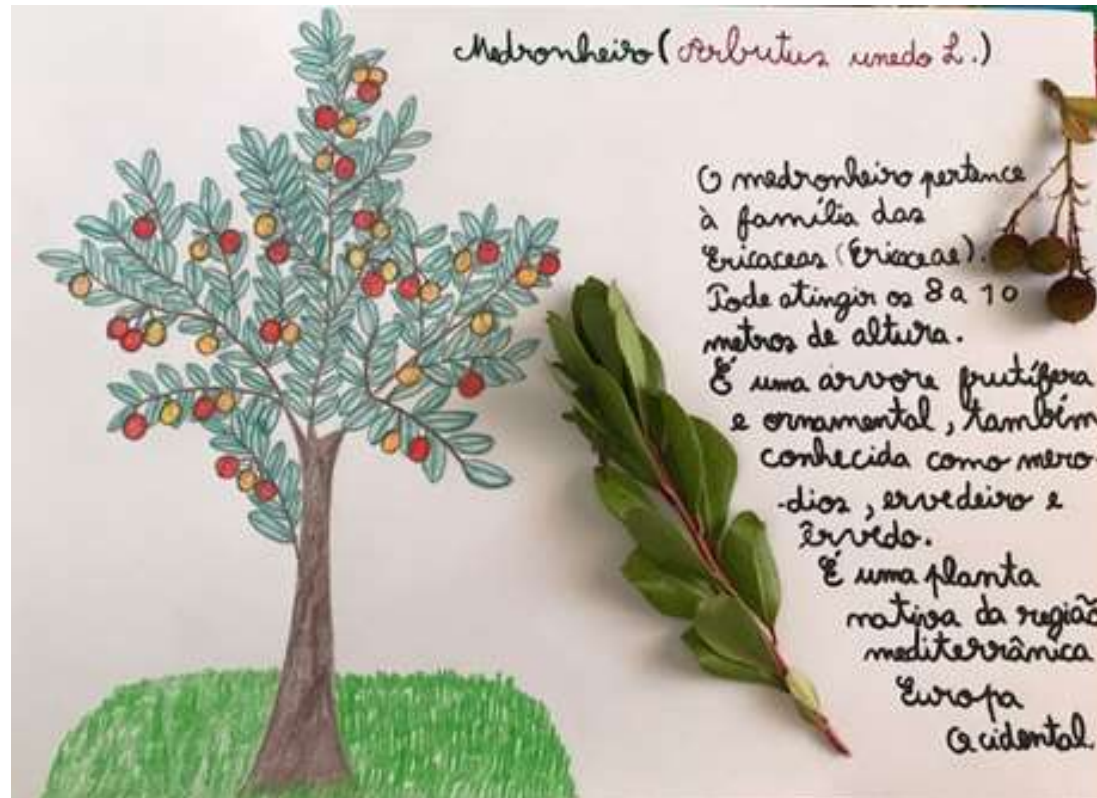 Medronheiro (Arbutus unedo L.)
O medronheiro pertence
à família das
Ericaceas (Ericaceae).
Pode atingir os 8 a 10
metros de altura.
É uma árvore frutífera
e ornamental, também
conhecida como mero-
-dios, ervedeiro e
êrvedo.
É uma planta
nativa da região
mediterrânica
Europa
Ocidental.